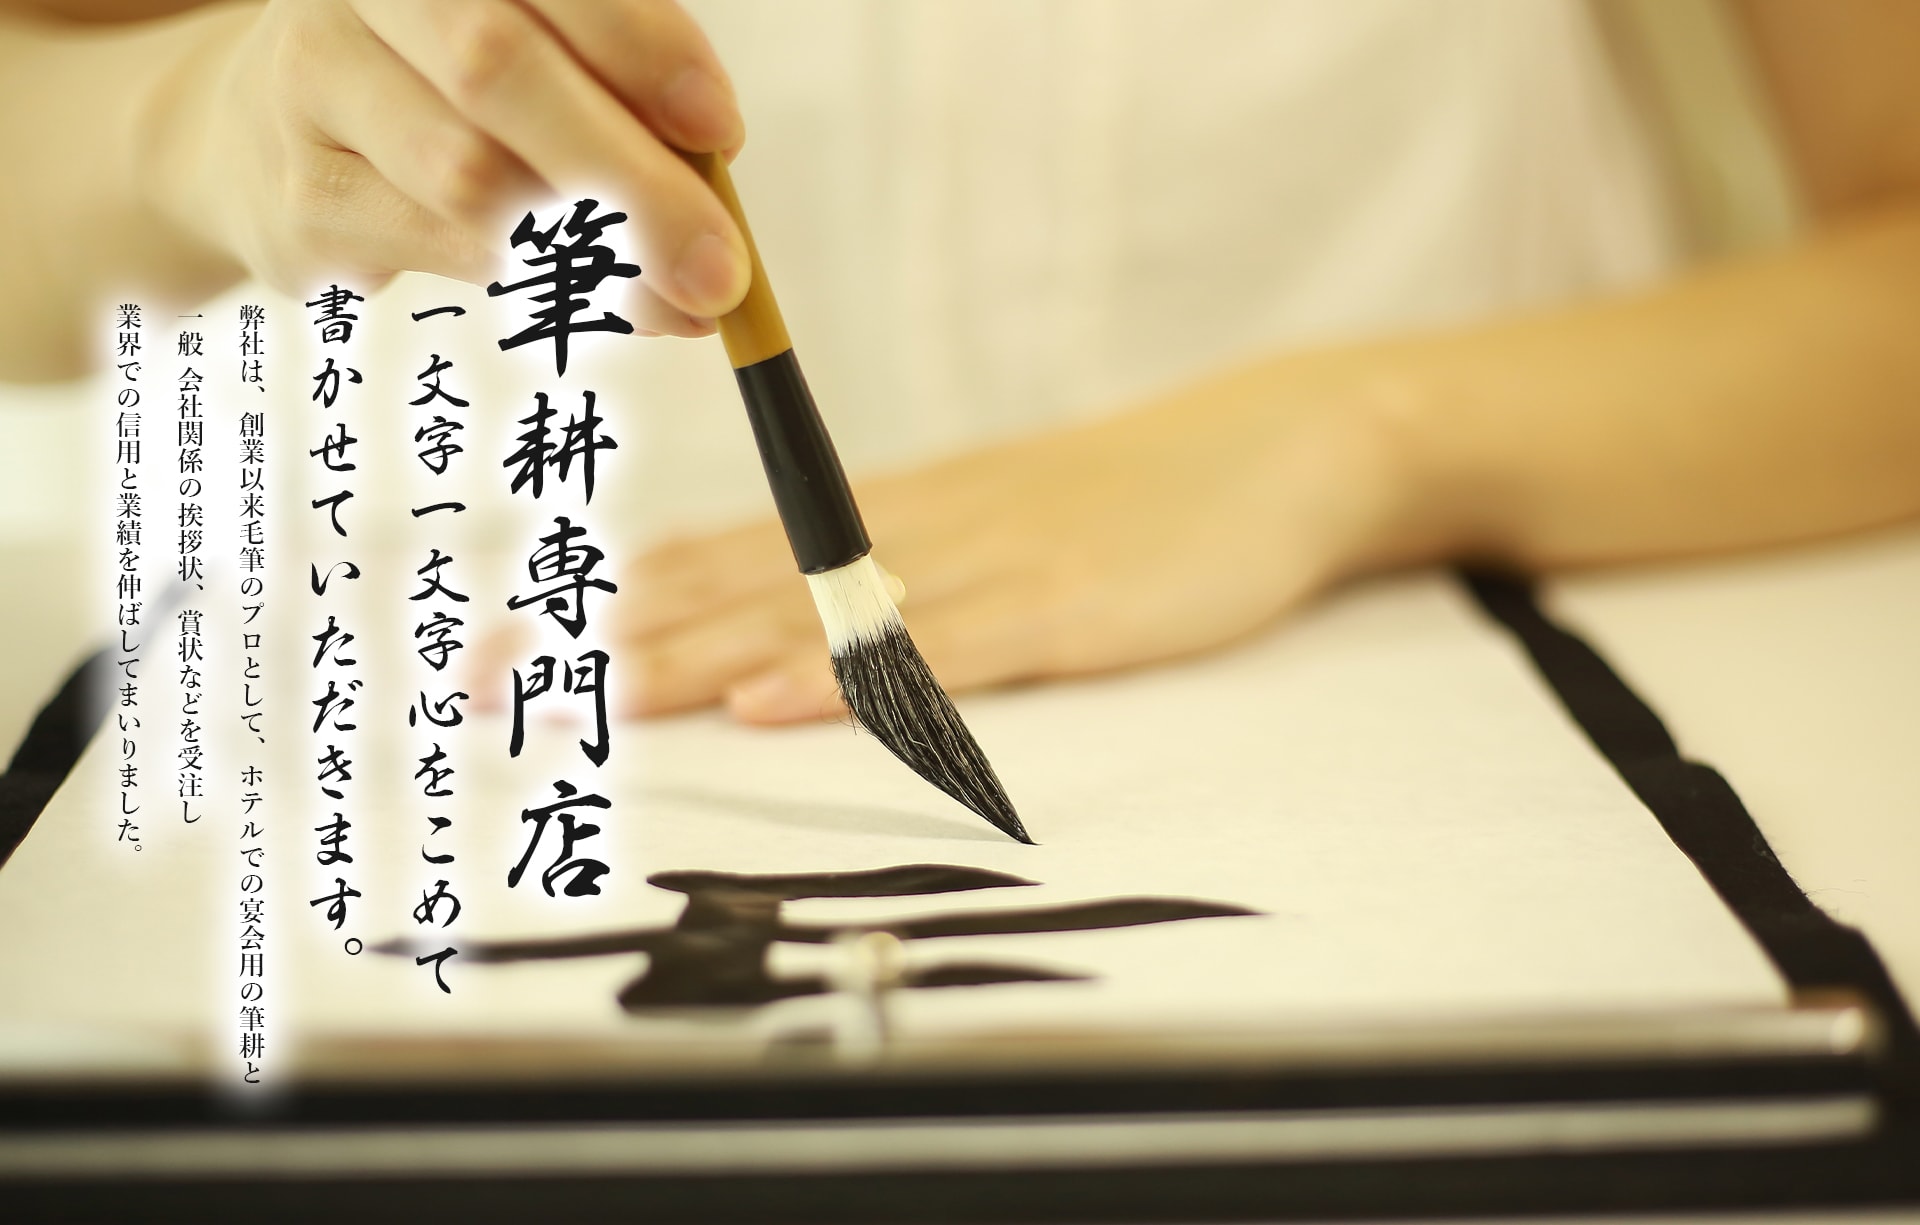 筆耕専門店
一文字一文字心をこめて
書かせていただきます。
弊社は、創業以来毛筆のプロとして、ホテルでの宴会用の筆耕と
一般会社関係の挨拶状、賞状などを受注し
業界での信用と業績を伸ばしてまいりました。